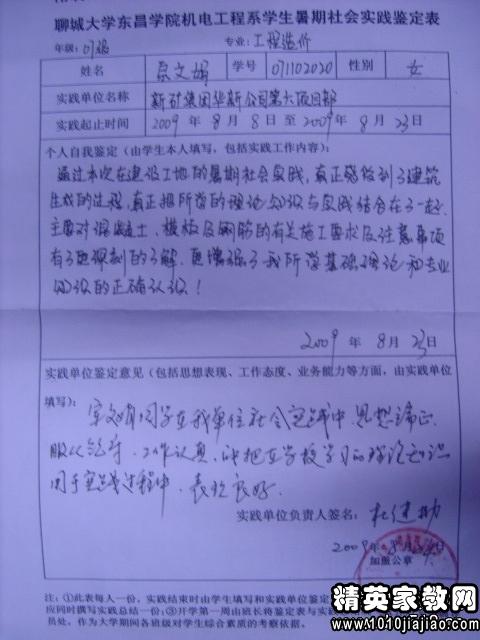 聊城大学东昌学院机电工程系学生暑期社会实践鉴定表
年级:07级 专业:工程造价
姓名 文娟 学号 071102020 性别 女
实践单位名称 新矿集团华新公司第六项目部
实践起止时间 2009 年 8 月 8 日 至 2009 年 8 月 23 日
个人自我鉴定(由学生本人填写,包括实践工作内容):
通过本次在建设工地的暑期社会实践,真正感做到了建筑
生成的过程,真正把所学的理论知识与实践结合在了一起.
主要对混凝土、模板及钢筋的有关施工要求及注意事项
有了更深刻的了解.更增强了我所学基础理论和专业
知识的正确认识!
2009 年 8 月 23 日
实践单位鉴定意见(包括思想表现、工作态度、业务能力等方面,由实践单位
填写):
文娟同学在我单位社会实践中,思想端正.
服从领导,工作认真,能把在学校学习的理论知识
用于实践过程中,表现良好.
实践单位负责人签名:杜建
2009年8月 日
加盖公章
注:①此表每人一份,实践结束时由学生填写和实践单位鉴定
应同时撰写实践总结一份;③开学第一周由班长将鉴定表与实践
员处,作为大学期间各班级对学生综合素质的考察依据。
精英家教网
www.1010jiajiao.com